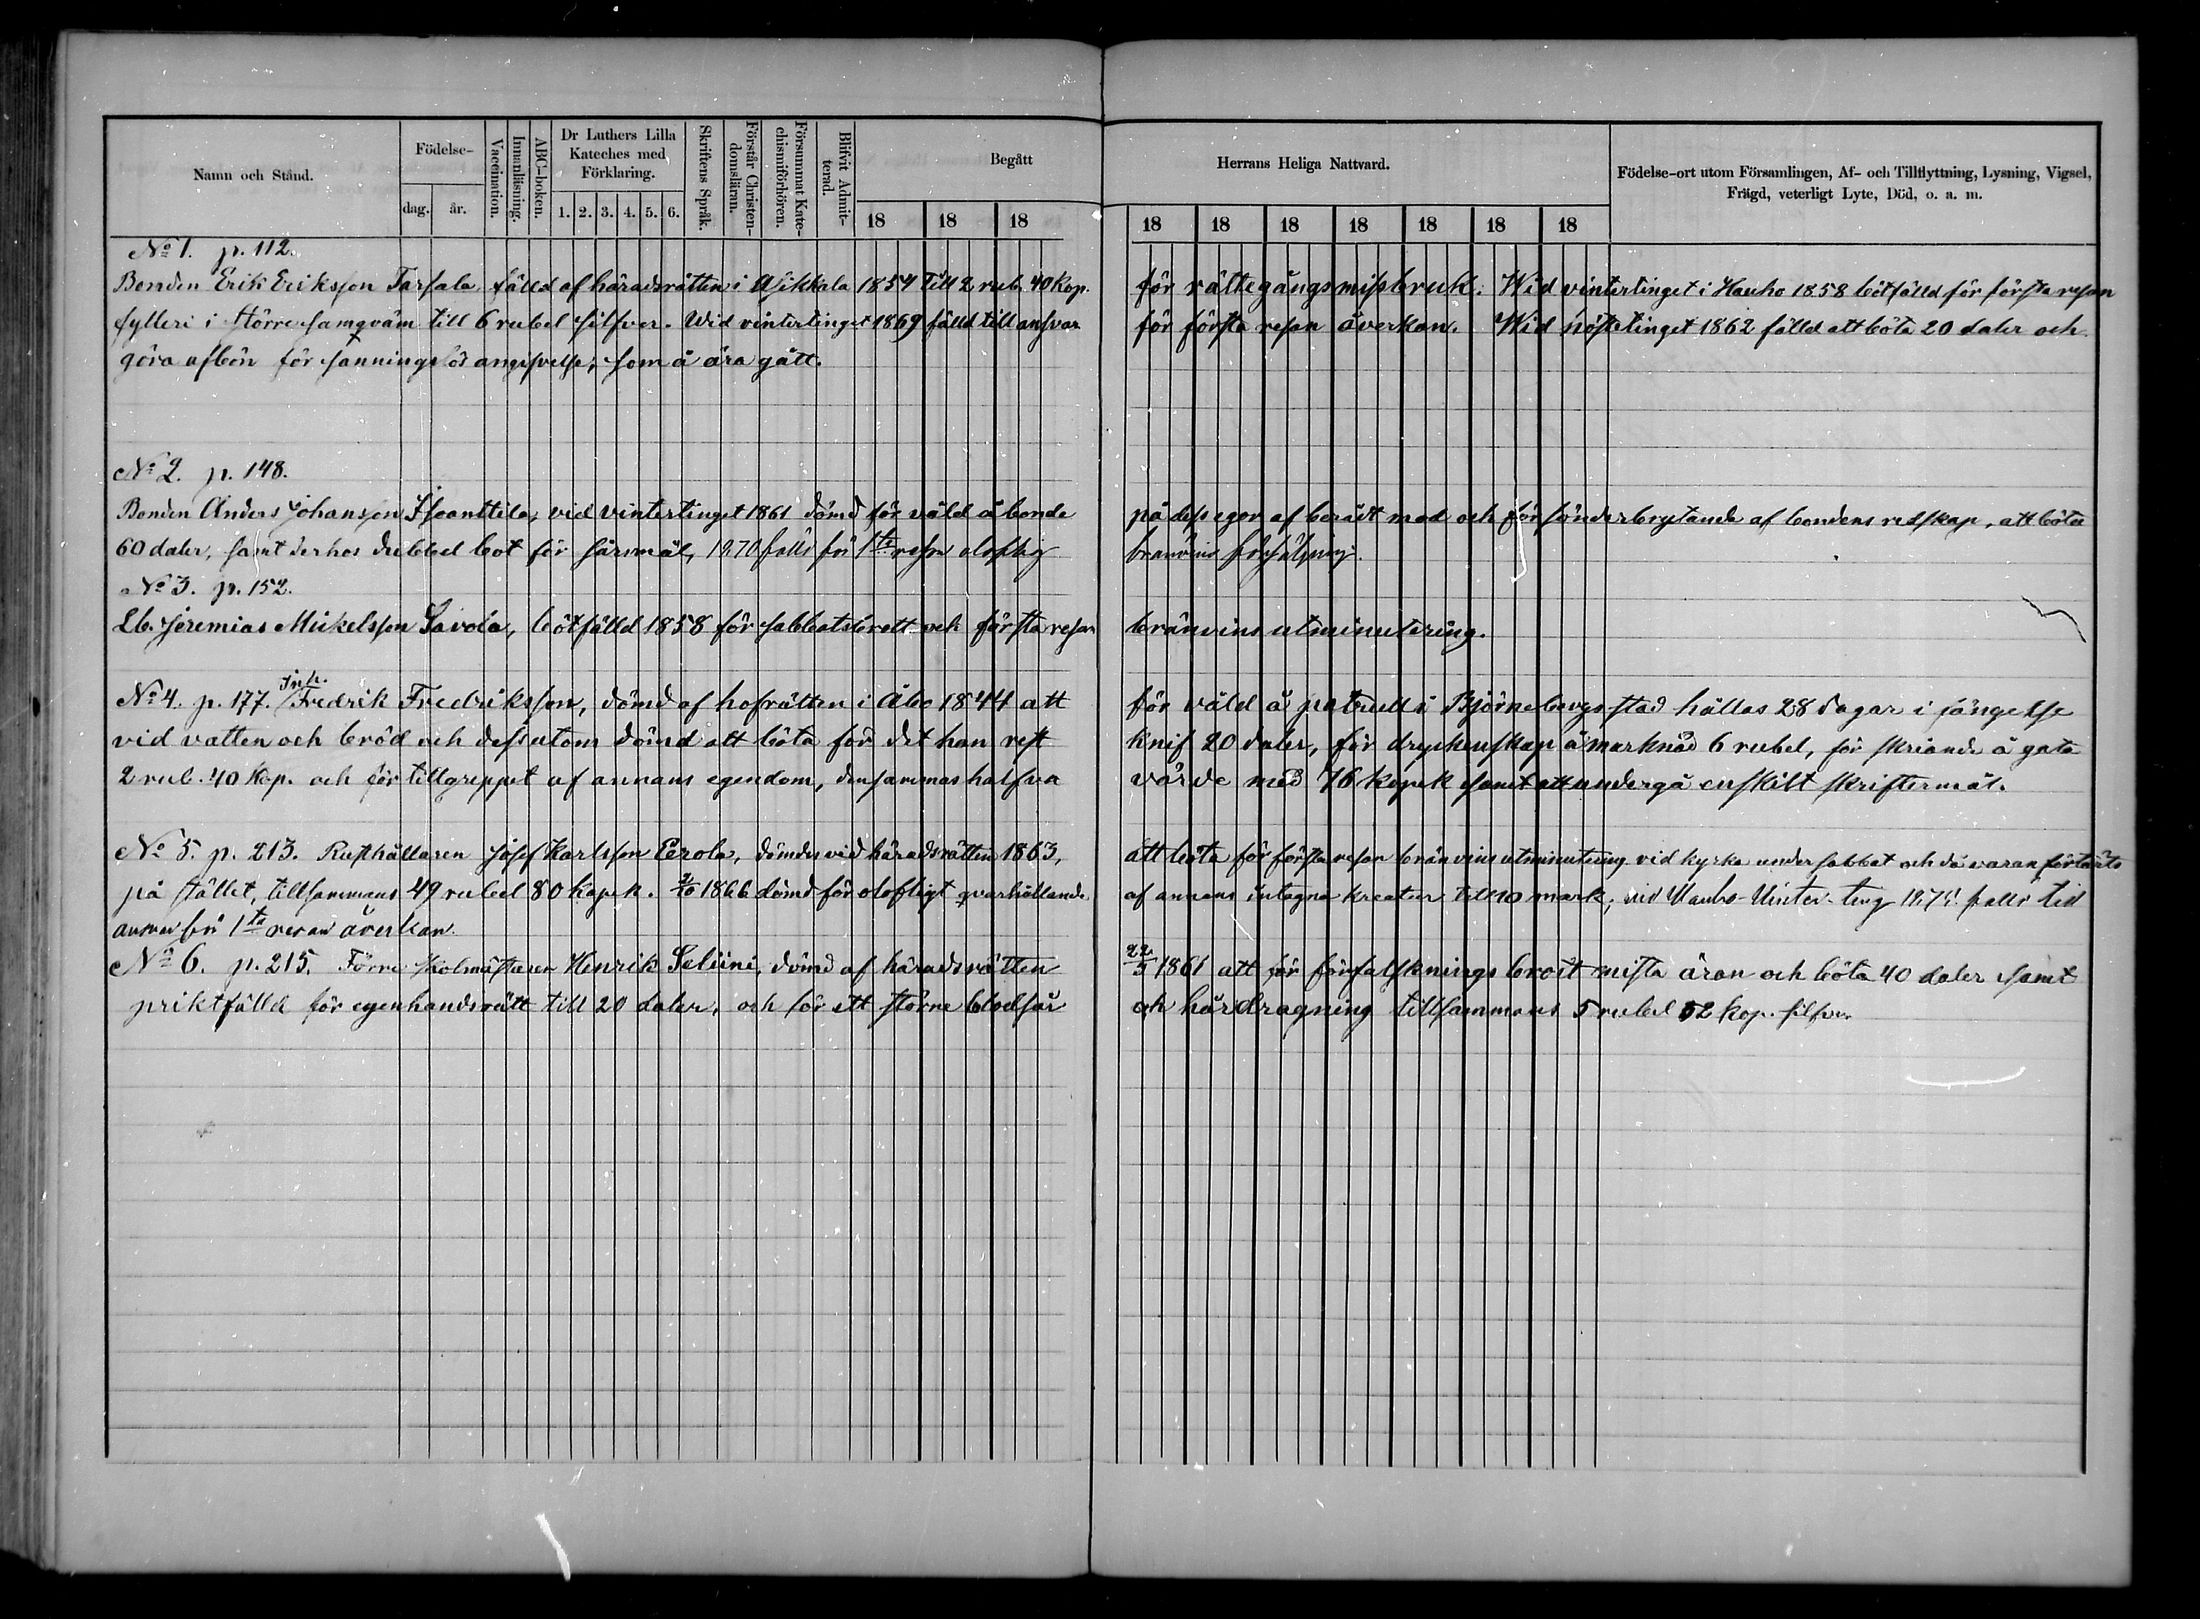 Namn och Stånd.
Födelse-
dag.
år.
Vaccination.
Innanläsning.
ABC-boken.
Dr Luthers Lilla
Kateches med
Förklaring.
1. 2. 3. 4. 5. 6.
Skriftens Språk.
Förstår Christen-
domsläran.
Försummat Kate-
chismiförhören.
Blifvit Admit-
terad.
Begått
18 18 18
Herrans Heliga Nattvard.
18 18 18 18 18 18 18
Födelse-ort utom Församlingen, Af- och Tillflyttning, Lysning, Vigsel,
Frägd, veterligt Lyte, Död, o. a. m.
No 1. p. 112.
Bonden Erik Eriksson Tarsala, fälld af häradsrätten i Asikkala 1854 till 2 rub. 40 kop. för rättegångsmissbruk. Wid vintertinget i Hauho 1858 bötfälld för första resan
fylleri i större samqväm till 6 rubel silfver. Wid vintertinget 1869 fälld till ansvar för första resan åverkan. Wid hösttinget 1862 fälld att böta 20 daler och
göra afbön för sanningslös angifvelse, som å ära gått.
No 2. p. 148.
Bonden Anders Johansson Isoanttila, vid vintertinget 1861 dömd för våld å bonde på dess egor af berådt mod och för sönderbrytande af bondens redskap, att böta
60 daler, samt derhos dubbel bot för sårmål, 1870 fälld för 1sta resan oloflig bränvins försäljning.
No 3. p. 152.
Lb. Jeremias Mickelsson Savola, bötfälld 1858 för sabbatsbrott och första resan bränvins utminutering.
No 4. p. 177. Inh. Fredrik Fredriksson, dömd af hofrätten i Åbo 1844 att för våld å patrull i Björneborgs stad hållas 28 dagar i fängelse
vid vatten och bröd och dessutom dömd att böta för det han rest knif 20 daler, för dryckenskap å marknad 6 rubel, för skriande å gata
2 rub. 40 kop. och för tillgreppet af annans egendom, densammas halfva värde med 76 kopek samt att undergå enskilt skriftermål.
No 5. p. 213. Rusthållaren Josef Karlsson Eerola, dömdes vid häradsrätten 1863, att böta för första resan bränvins utminutering vid kyrka under sabbat och då varan förtärts
på stället, tillsammans 49 rubel 80 kopek. 1866 dömd för olofligt qvarhållande af annans intagna kreatur till 10 mark, vid Hauho Vinter-ting fälld till
ansvar för 1sta resan åverkan.
No 6. p. 215. Förre skolmästaren Henrik Seliini, dömd af häradsrätten 22/3 1861 att för förfalsknings brott mista äran och böta 40 daler samt
pliktfälld för egenhandsrätt till 20 daler, och för ett större blodsår och hårdragning tillsammans 5 rubel 52 kop. silfver.